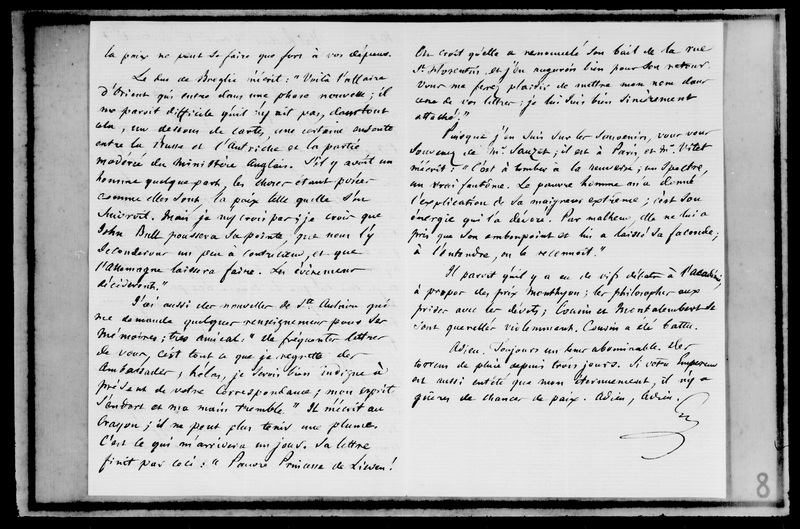 la paix ne peut se faire que fort à vos dépens.
Le duc de Broglie m'écrit : "Voilà l'affaire
d'Orient qui entre dans une phase nouvelle ; il
me paroit difficile qu'il n'y ait pas, dans tout
cela, un dessous de cartes, une certaine entente
entre la Prusse et l'Autriche et la partie
modérée du Ministère Anglais. S'il y avoit un
homme quelque part, les choses étant posées
comme elles sont, la paix telle quelle s'en
suivroit. Mais je n'y crois pas ; je crois que
John Bull poussera sa pointe, que nous l'y
seconderons un peu à contrecoeur, et que
l'Allemagne laissera faire. Les évènemens
décideront."
J'ai aussi des nouvelles de Ste Aulaire qui
me demande quelques renseignemens pour ses
Mémoires ; très amical. " de fréquentes lettres
de vous, c'est tout ce que je regrette des
Ambassades ; hélas, je serois bien indigne à
présent de votre Correspondance ; mon esprit
s'endort et ma main tremble." Il m'écrit au
Crayon ; il ne peut plus tenir une plume.
C'est ce qui m'arrivera un jour. Sa lettre
finit par ceci : " Pauvre Princesse de Lieven !
On croit qu'elle a renouvelé son bail de la rue
St Florentin, et j'en augure bien pour son retour.
Vous me ferez plaisir de mettre mon nom dans
une de vos lettres ; je lui suis bien sincèrement
attaché."
Puisque j'en suis sur les souvenirs, vous vous
souvenez de Mr Sauzet ; il est à Paris, et Mr Vitet
m'écrit : " C'est à tomber à la renverse ; un spectre,
un vrai fantôme. Le pauvre homme m'a donné
l'explication de sa maigreur extrême ; c'est son
énergie qui l'a dévoré. Par malheur, elle ne lui a
pris que son embonpoint et lui a laissé sa faconde ;
à l'entendre, on le reconnoit."
Il paroit qu'il y a eu de vifs débats à l'Académie,
à propos des prix Monthyon ; les philosophes aux
prises avec les dévots ; Cousin et Montalembert se
sont querellés violemment. Cousin a été battu.
Adieu. Toujours un tems abominable. des
torrens de pluie depuis trois jours. Si votre Empereur
est aussi entêté que mon éternuement, il n'y a
guères de chances de paix. Adieu, Adieu.
8